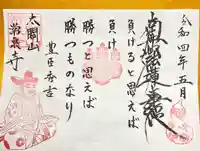 令和四年五月
南無妙法蓮華経
負けると思えば
負け
勝つと思えば
勝つものなり
豊臣秀吉
太閤山
常泉寺